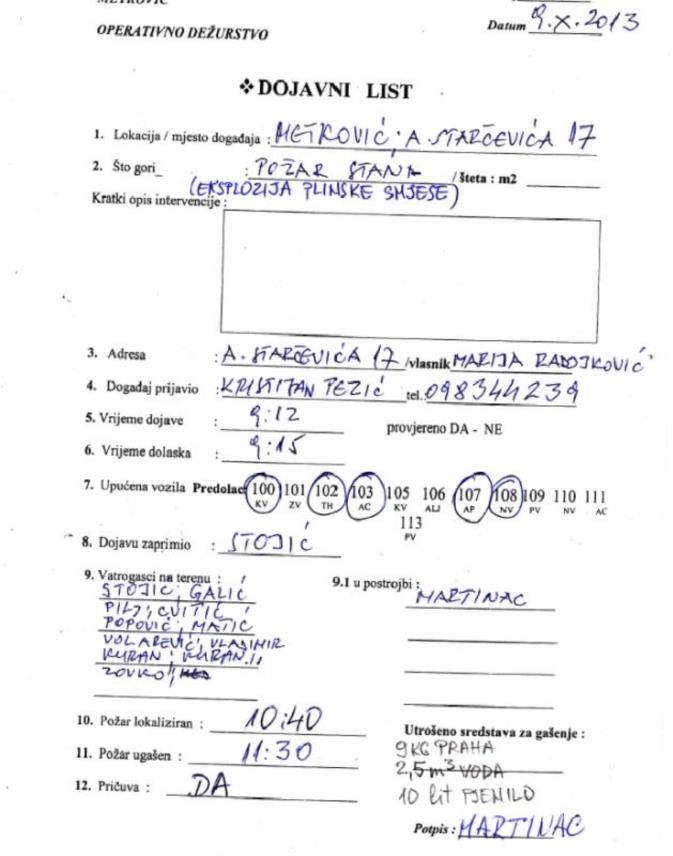 METKOVIĆ
OPERATIVNO DEŽURSTVO
Datum 9.X.2013
❖DOJAVNI LIST
1. Lokacija / mjesto događaja : METKOVIĆ, A. STARČEVIĆA 17
2. Što gori_ : POŽAR STANA / šteta : m2
(EKSPLOZIJA PLINSKE SMJESE)
Kratki opis intervencije :
3. Adresa : A. STARČEVIĆA 17 /vlasnik MARIJA RADOJKOVIĆ
4. Događaj prijavio : KRISTIJAN PEZIĆ tel. 098344239
5. Vrijeme dojave : 9:12 provjereno DA - NE
6. Vrijeme dolaska : 9:15
7. Upućena vozila Predolac 100 101 102 103 105 106 107 108 109 110 111
KV ZV TH AC KV ALJ AP NV PV NV AC
113
PV
8. Dojavu zaprimio : STOJIĆ
9. Vatrogasci na terenu : 9.1 u postrojbi :
STOJIĆ, GALIĆ MARTINAC
CVITIĆ
POPOVIĆ, MATIĆ
VOLAREVIĆ, VLADIMIR
ZOVKO
10. Požar lokaliziran : 10:40
11. Požar ugašen : 11:30
12. Pričuva : DA
Utrošeno sredstava za gašenje :
9KG PRAHA
2,5m³ VODA
10 lit PJENILO
Potpis : MARTINAC